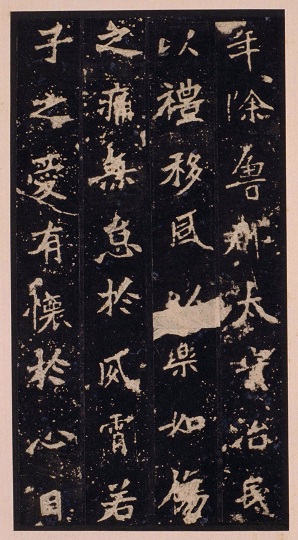 年除魯郡太守治民
以禮移風以樂如傷
之痛無怠於夙宵若
子之愛有懷於心目